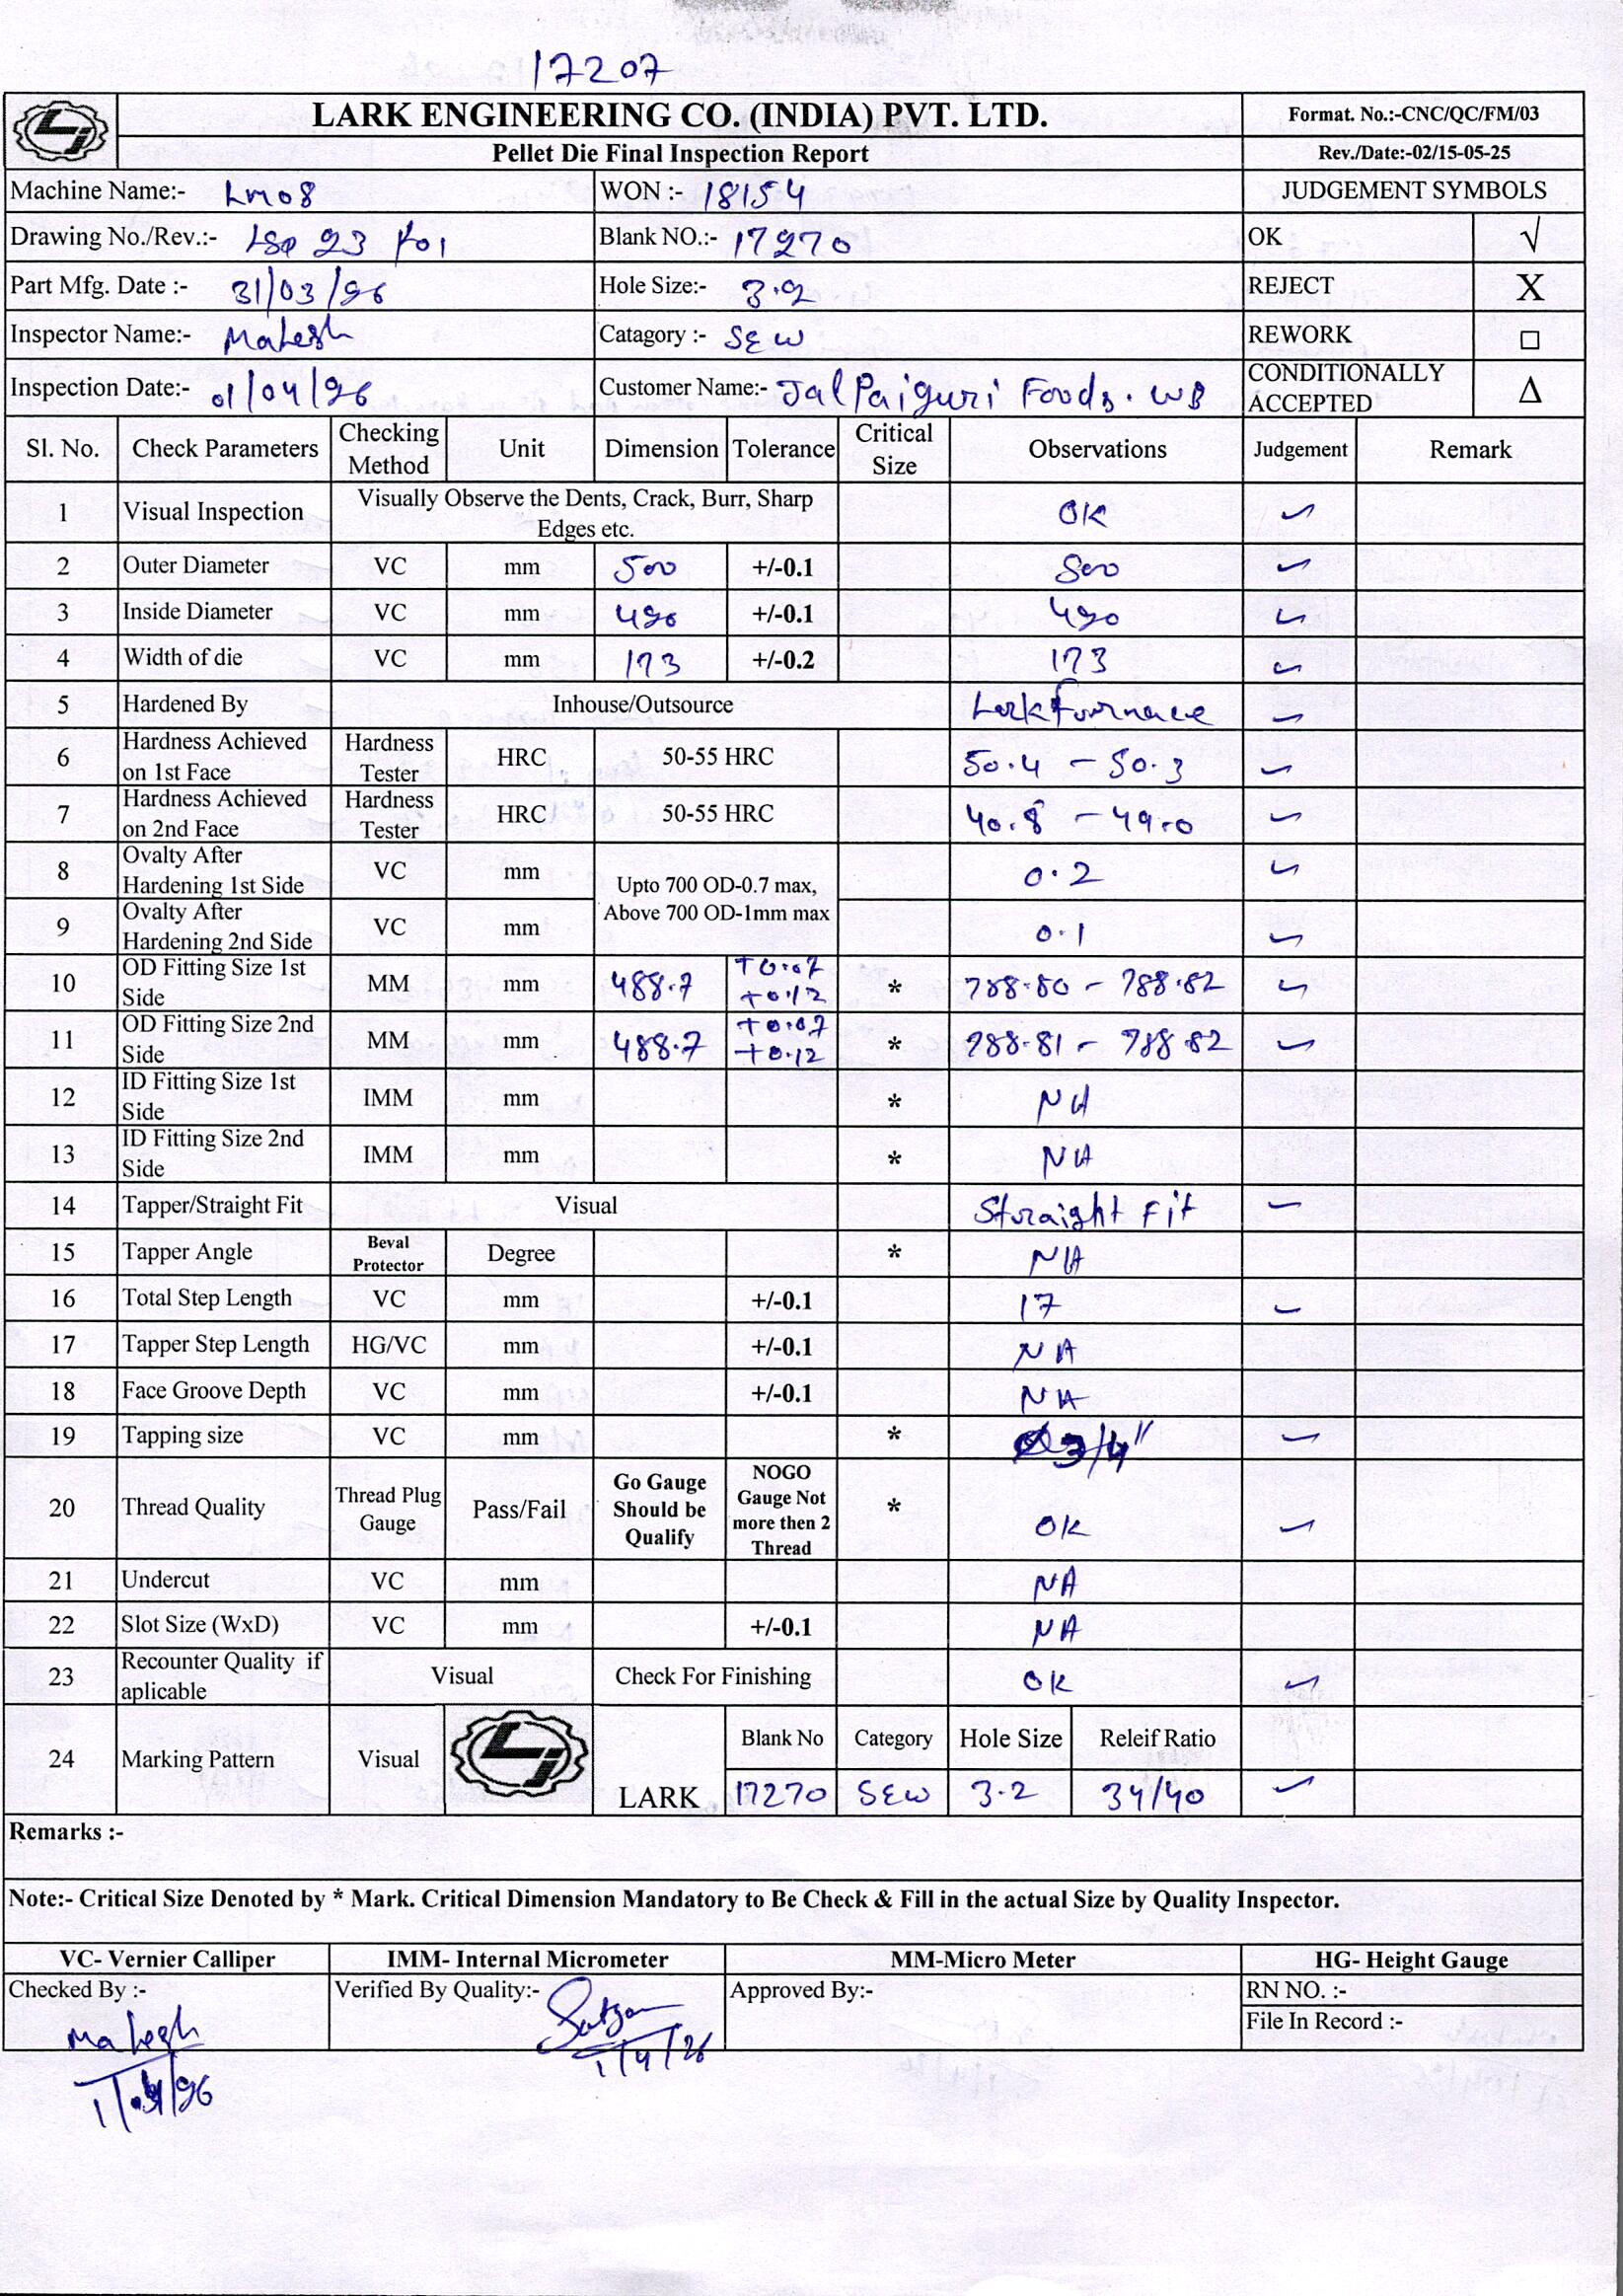 17207
LARK ENGINEERING CO. (INDIA) PVT. LTD. Format. No.:-CNC/QC/FM/03
Pellet Die Final Inspection Report Rev./Date:-02/15-05-25
Machine Name:- Lm08 WON :- 18154 JUDGEMENT SYMBOLS
Drawing No./Rev.:- Blank NO.:- 17270 OK √
Part Mfg. Date :- 31/03/26 Hole Size:- 3.2 REJECT X
Inspector Name:- Mahesh Catagory :- SEW REWORK □
Inspection Date:- 01/04/26 Customer Name:- JalPaiguri Foods. WB CONDITIONALLY ACCEPTED Δ
Sl. No. Check Parameters Checking Method Unit Dimension Tolerance Critical Size Observations Judgement Remark
1 Visual Inspection Visually Observe the Dents, Crack, Burr, Sharp Edges etc. OK ✓
2 Outer Diameter VC mm 500 +/-0.1 500 ✓
3 Inside Diameter VC mm 420 +/-0.1 420 ✓
4 Width of die VC mm 173 +/-0.2 173 ✓
5 Hardened By Inhouse/Outsource Lark furnace ✓
6 Hardness Achieved on 1st Face Hardness Tester HRC 50-55 HRC 50.4 - 50.3 ✓
7 Hardness Achieved on 2nd Face Hardness Tester HRC 50-55 HRC 40.8 - 49.0 ✓
8 Ovalty After Hardening 1st Side VC mm Upto 700 OD-0.7 max, Above 700 OD-1mm max 0.2 ✓
9 Ovalty After Hardening 2nd Side VC mm 0.1 ✓
10 OD Fitting Size 1st Side MM mm 488.7 +0.07 +0.12 * 788.80 - 788.82 ✓
11 OD Fitting Size 2nd Side MM mm 488.7 +0.07 +0.12 * 788.81 - 788.82 ✓
12 ID Fitting Size 1st Side IMM mm * NA
13 ID Fitting Size 2nd Side IMM mm * NA
14 Tapper/Straight Fit Visual Straight Fit ✓
15 Tapper Angle Beval Protector Degree * NA
16 Total Step Length VC mm +/-0.1 17 ✓
17 Tapper Step Length HG/VC mm +/-0.1 NA
18 Face Groove Depth VC mm +/-0.1 NA
19 Tapping size VC mm * 3/4" ✓
20 Thread Quality Thread Plug Gauge Pass/Fail Go Gauge Should be Qualify NOGO Gauge Not more then 2 Thread * OK ✓
21 Undercut VC mm NA
22 Slot Size (WxD) VC mm +/-0.1 NA
23 Recounter Quality if aplicable Visual Check For Finishing OK ✓
24 Marking Pattern Visual LARK Blank No Category Hole Size Releif Ratio
17270 SEW 3.2 34/40 ✓
Remarks :-
Note:- Critical Size Denoted by * Mark. Critical Dimension Mandatory to Be Check & Fill in the actual Size by Quality Inspector.
VC- Vernier Calliper IMM- Internal Micrometer MM-Micro Meter HG- Height Gauge
Checked By :- Verified By Quality:- Approved By:- RN NO. :-
File In Record :-
Mahesh 1/4/26